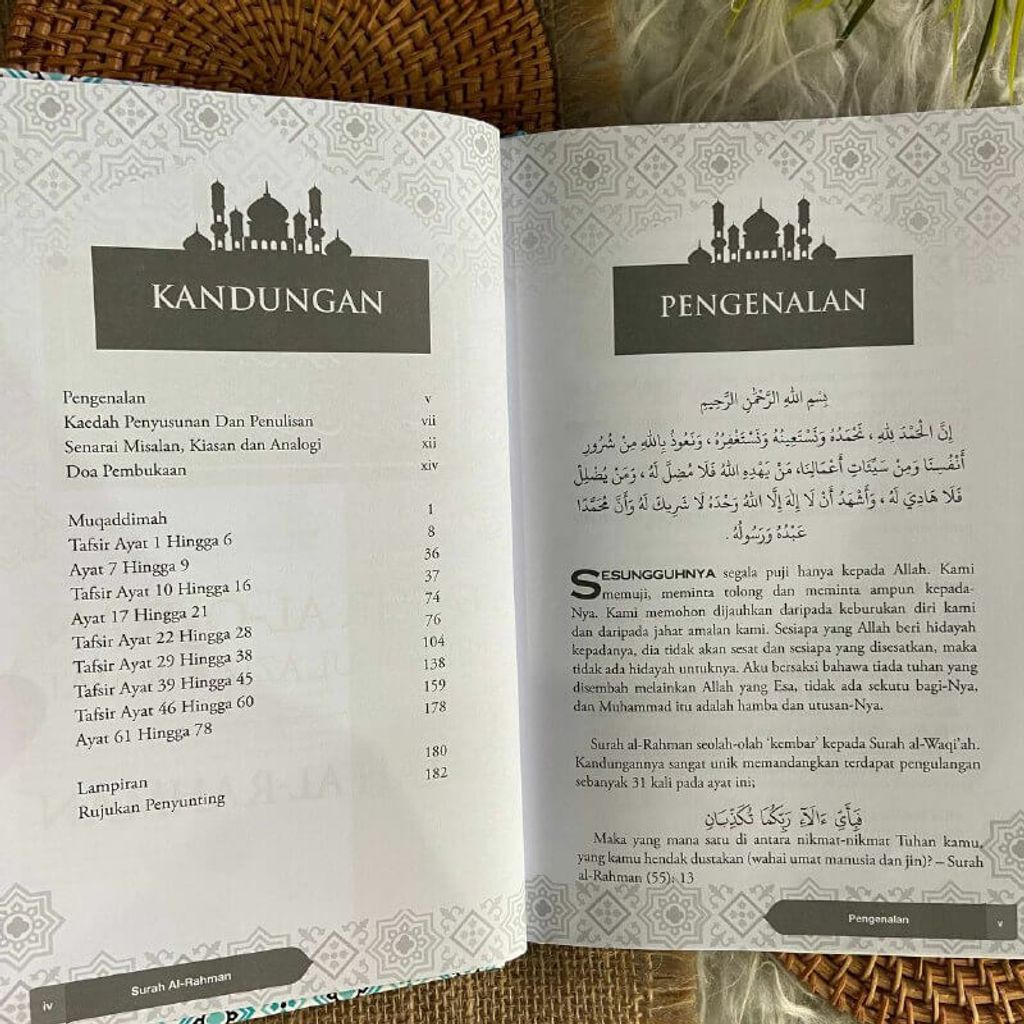 KANDUNGAN
Pengenalan v
Kaedah Penyusunan Dan Penulisan vii
Senarai Misalan, Kiasan dan Analogi xii
Doa Pembukaan xiv
Muqaddimah 1
Tafsir Ayat 1 Hingga 6 8
Ayat 7 Hingga 9 36
Tafsir Ayat 10 Hingga 16 37
Ayat 17 Hingga 21 74
Tafsir Ayat 22 Hingga 28 76
Tafsir Ayat 29 Hingga 38 104
Tafsir Ayat 39 Hingga 45 138
Tafsir Ayat 46 Hingga 60 159
Ayat 61 Hingga 78 178
Lampiran 180
Rujukan Penyunting 182
iv Surah Al-Rahman
PENGENALAN
بِسْمِ اللهِ الرَّحْمٰنِ الرَّحِيْمِ
إِنَّ الْحَمْدَ لِلّٰهِ ، نَحْمَدُهُ وَنَسْتَعِينُهُ وَنَسْتَغْفِرُهُ ، وَنَعُوذُ بِاللهِ مِنْ شُرُورِ
أَنْفُسِنَا وَمِنْ سَيِّئَاتِ أَعْمَالِنَا، مَنْ يَهْدِهِ اللهُ فَلَا مُضِلَّ لَهُ ، وَمَنْ يُضْلِلْ
فَلَا هَادِيَ لَهُ ، وَأَشْهَدُ أَنْ لَا إِلٰهَ إِلَّا اللهُ وَحْدَهُ لَا شَرِيكَ لَهُ وَأَنَّ مُحَمَّدًا
عَبْدُهُ وَرَسُولُهُ .
SESUNGGUHNYA segala puji hanya kepada Allah. Kami
memuji, meminta tolong dan meminta ampun kepada-
Nya. Kami memohon dijauhkan daripada keburukan diri kami
dan daripada jahat amalan kami. Sesiapa yang Allah beri hidayah
kepadanya, dia tidak akan sesat dan sesiapa yang disesatkan, maka
tidak ada hidayah untuknya. Aku bersaksi bahawa tiada tuhan yang
disembah melainkan Allah yang Esa, tidak ada sekutu bagi-Nya,
dan Muhammad itu adalah hamba dan utusan-Nya.
Surah al-Rahman seolah-olah 'kembar' kepada Surah al-Waqi'ah.
Kandungannya sangat unik memandangkan terdapat pengulangan
sebanyak 31 kali pada ayat ini;
فَبِأَيِّ ءَالَآءِ رَبِّكُمَا تُكَذِّبَانِ
Maka yang mana satu di antara nikmat-nikmat Tuhan kamu,
yang kamu hendak dustakan (wahai umat manusia dan jin)? – Surah
al-Rahman (55): 13
Pengenalan v